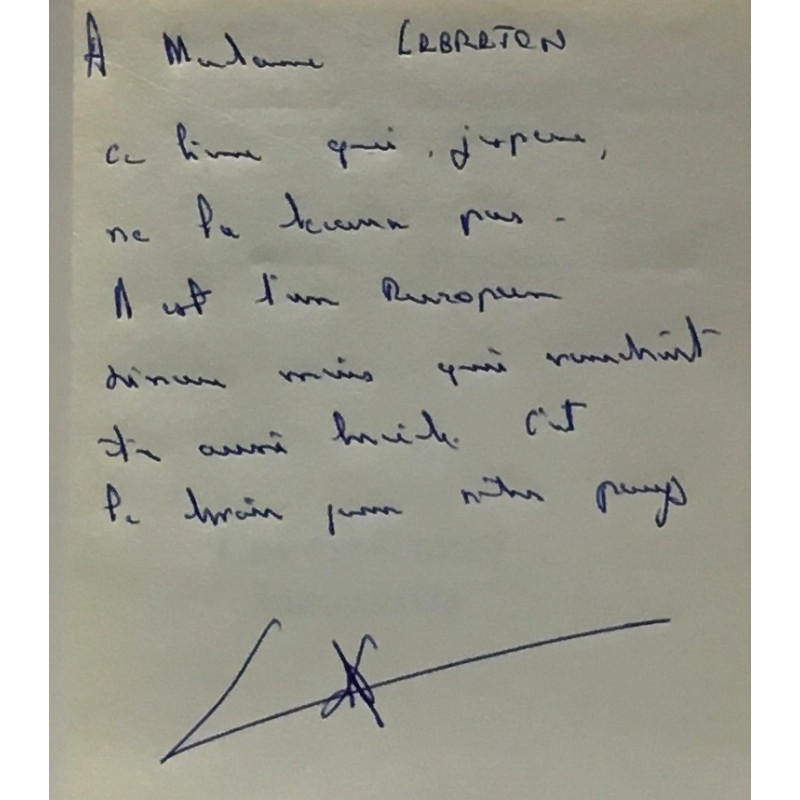 A Madame LEBRETON
ce livre qui, j'espère,
ne la pas -
Il est d'un Européen
mais qui voudrait
être aussi lucide. C'est
le pour notre pays